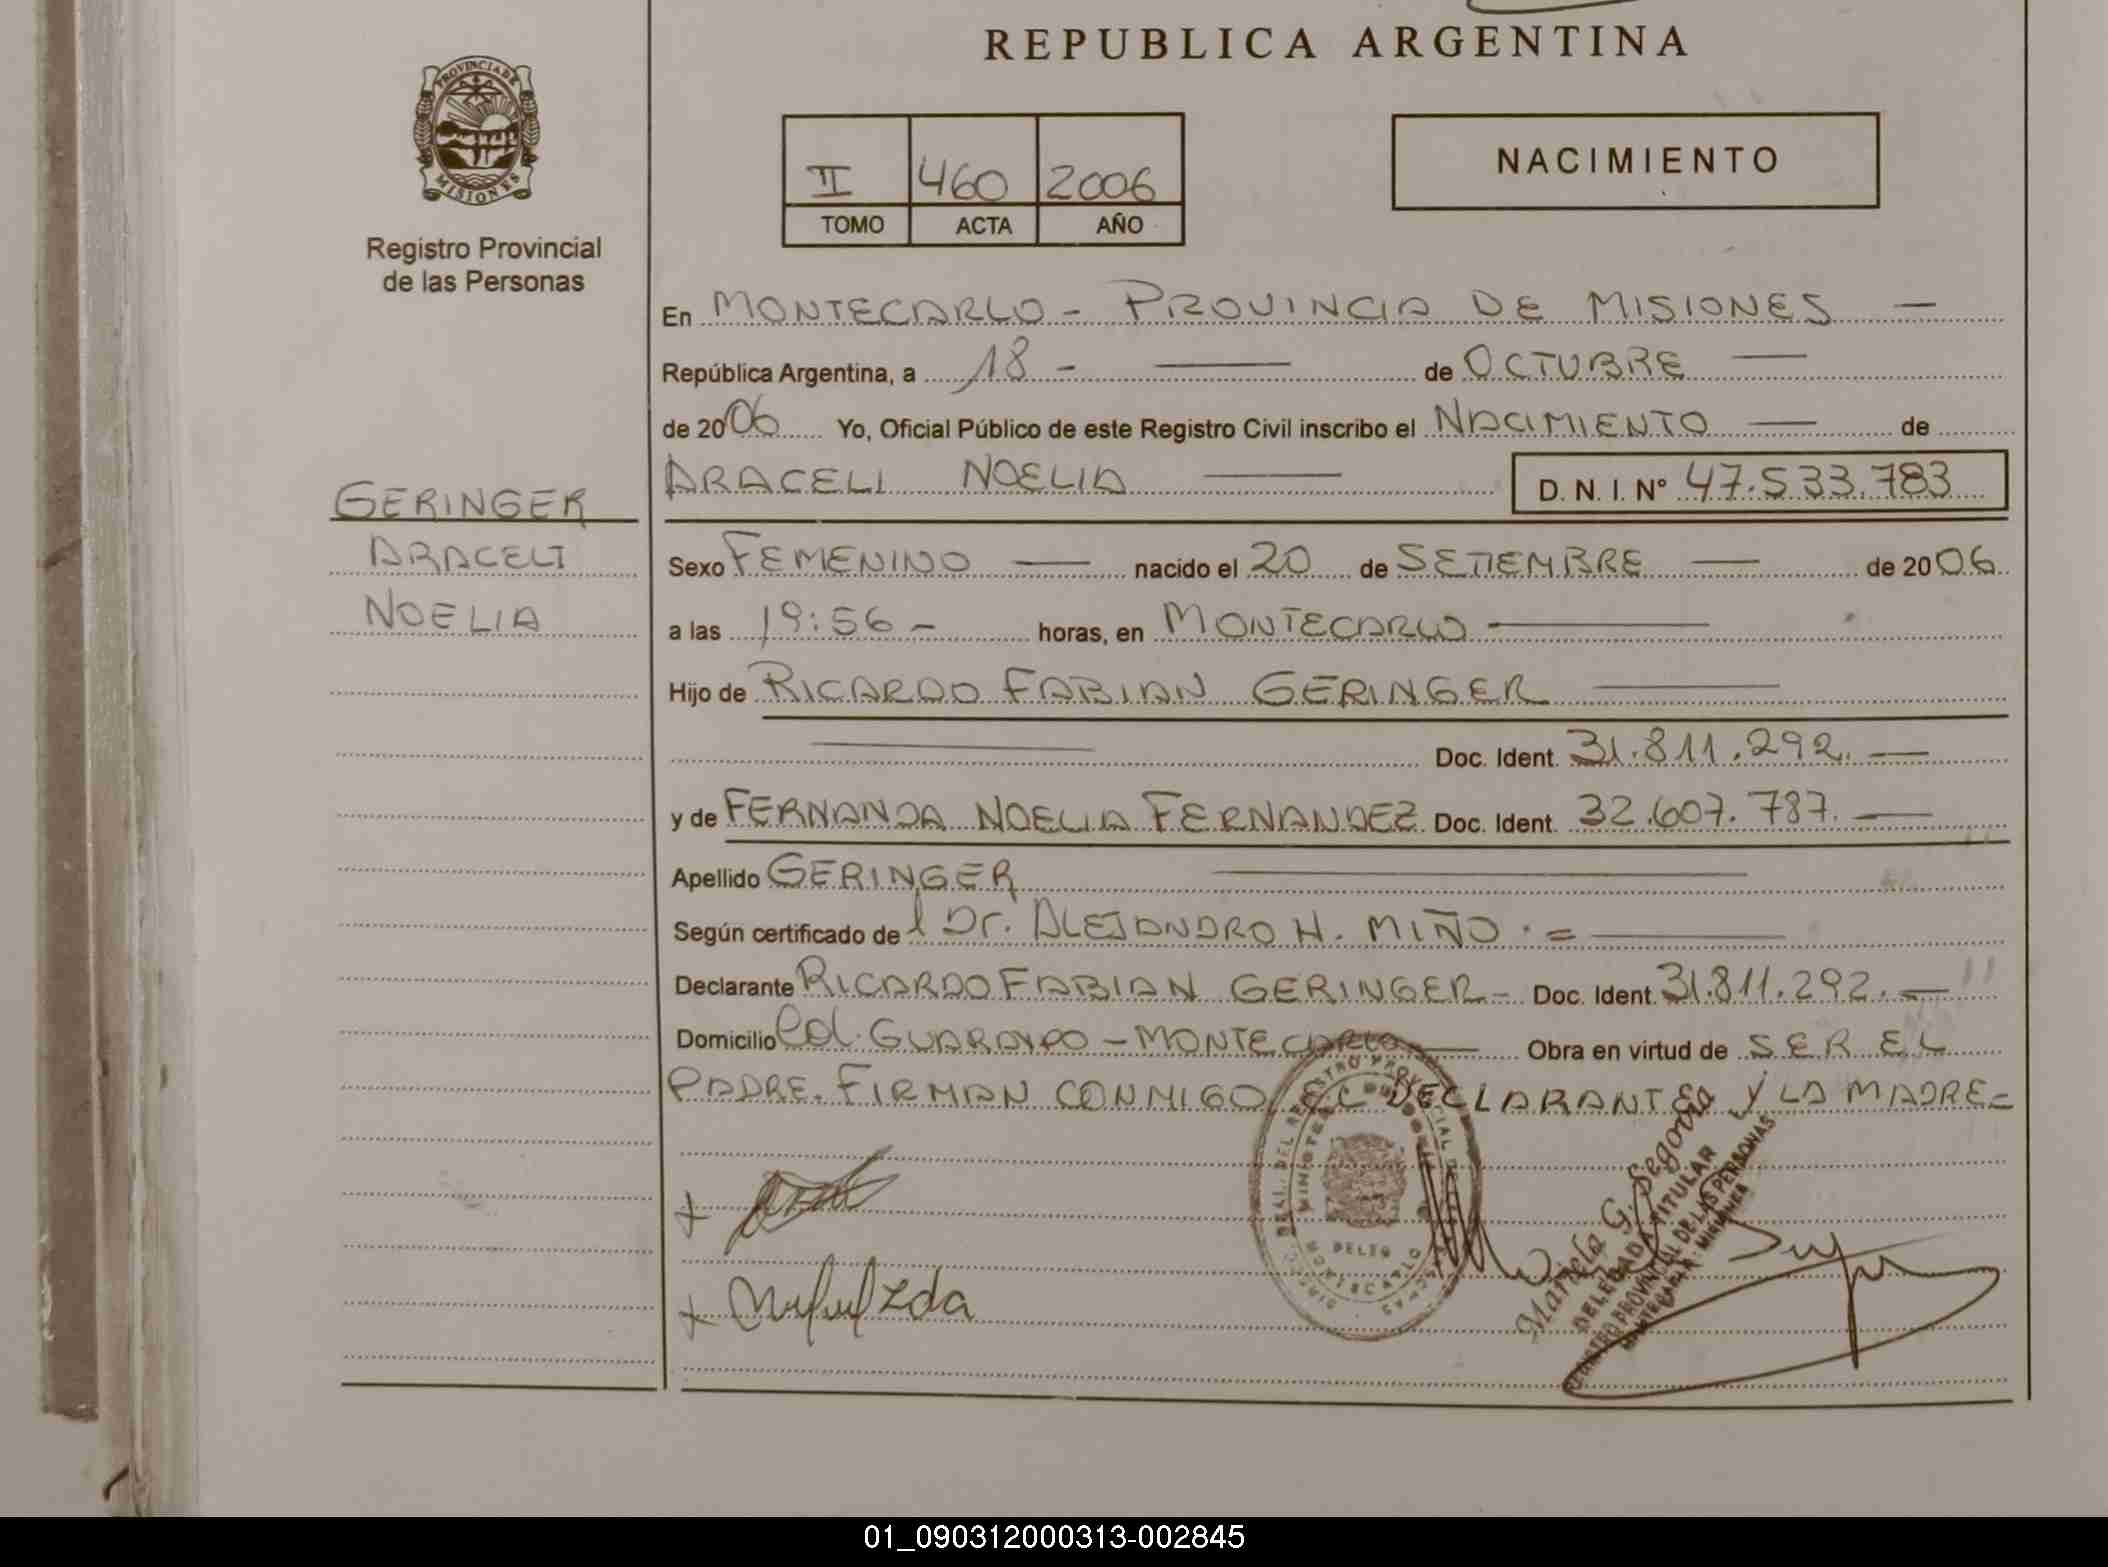 REPUBLICA ARGENTINA
PROVINCIA DE
MISIONES
Registro Provincial
de las Personas
II 460 2006
TOMO ACTA AÑO
NACIMIENTO
En MONTECARLO - PROVINCIA DE MISIONES —
República Argentina, a 18 - — de OCTUBRE —
de 2006 Yo, Oficial Público de este Registro Civil inscribo el NACIMIENTO — de
ARACELI NOELIA — D. N. I. N° 47.533.783
GERINGER
ARACELI
NOELIA
Sexo FEMENINO — nacido el 20 de SETIEMBRE — de 2006
a las 19:56 - horas, en MONTECARLO —
Hijo de RICARDO FABIAN GERINGER —
— Doc. Ident. 31.811.292. —
y de FERNANDA NOELIA FERNANDEZ Doc. Ident. 32.607.787. —
Apellido GERINGER —
Según certificado de l Dr. ALEJANDRO H. MIÑO . = —
Declarante RICARDO FABIAN GERINGER - Doc. Ident. 31.811.292. —
Domicilio Col. GUARAYPO - MONTECARLO — Obra en virtud de SER EL
PADRE. FIRMAN CONMIGO EL DECLARANTE Y LA MADRE =
Mariela G. Segovia
DELEGADA TITULAR
REGISTRO PROVINCIAL DE LAS PERSONAS
01_090312000313-002845